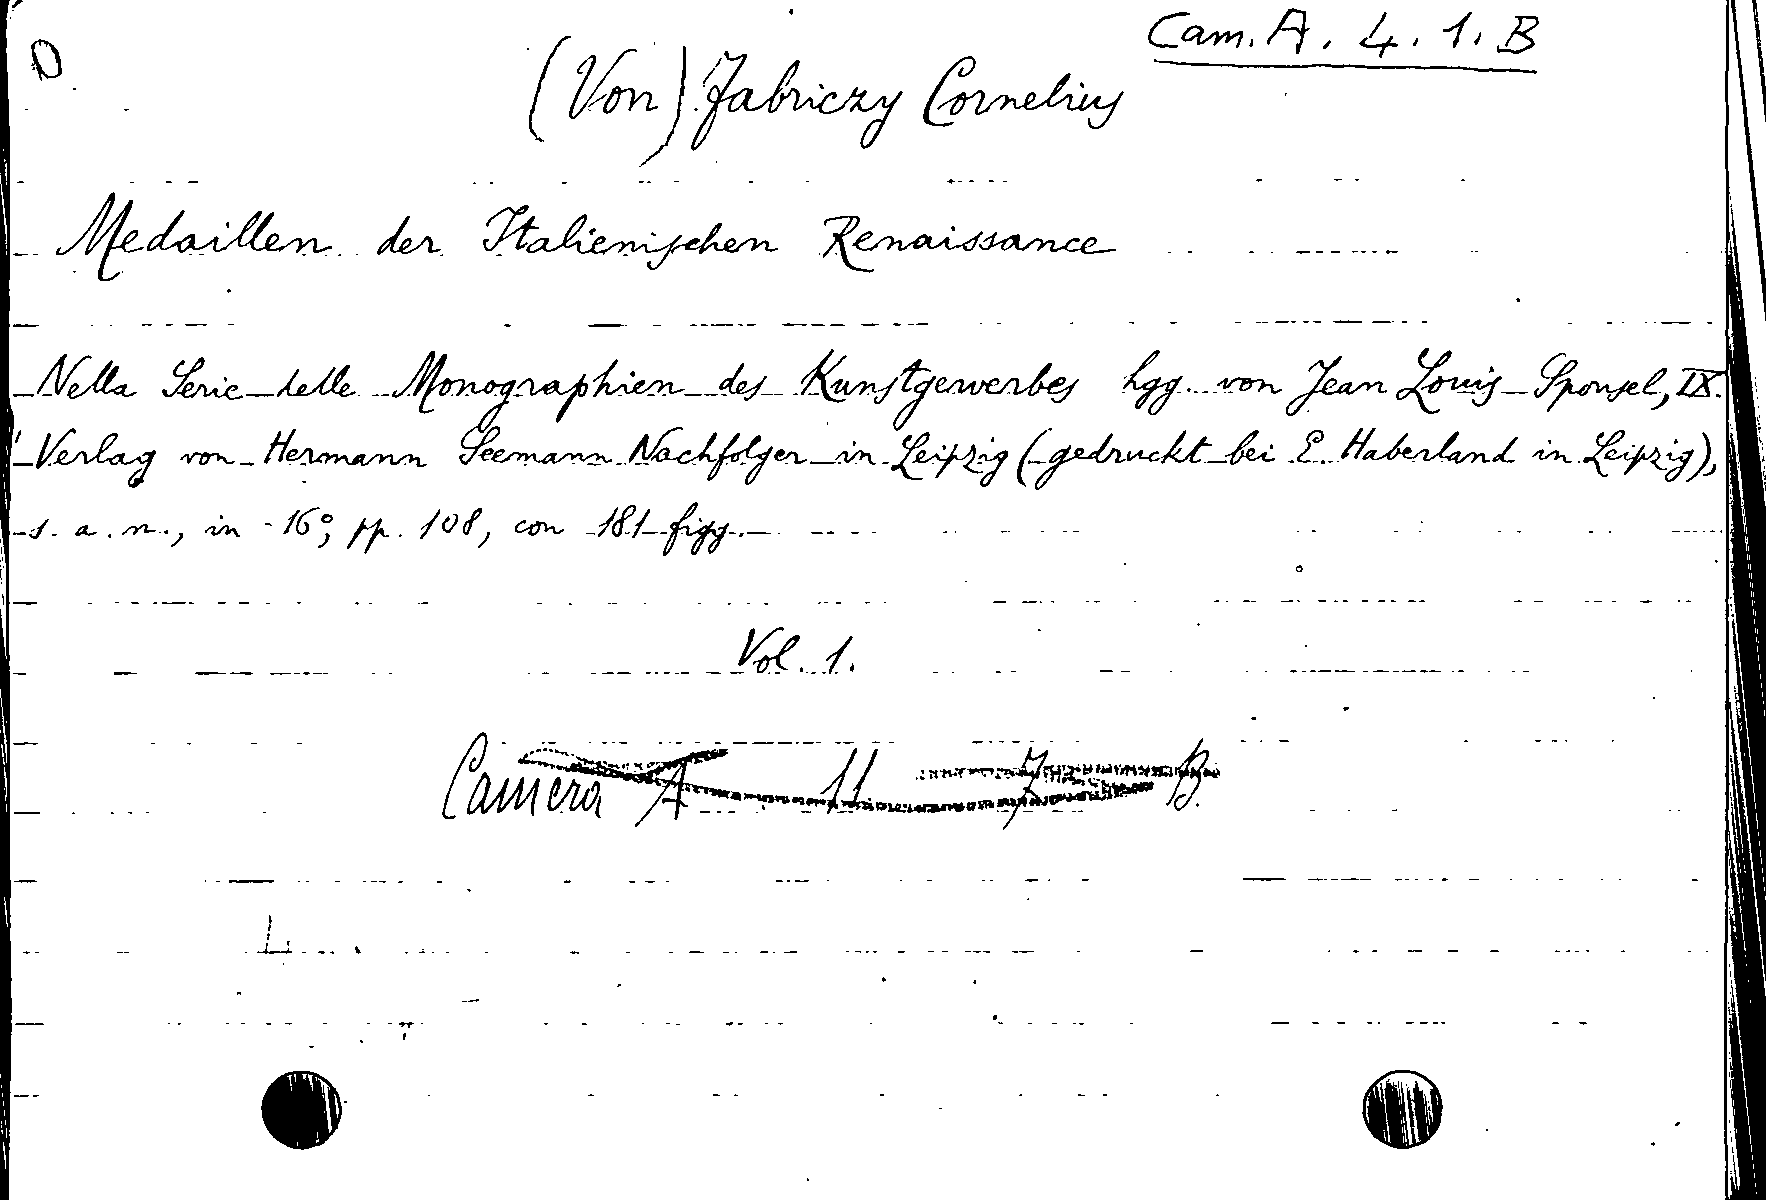 Cam. A. 4. 1. B
(Von) Fabriczy Cornelius
Medaillen der Italienischen Renaissance
Nella Serie delle Monographien des Kunstgewerbes hgg. von Jean Louis Sponsel, IX.
Verlag von Hermann Seemann Nachfolger in Leipzig (gedruckt bei E. Haberland in Leipzig),
s. a. n., in -16°, pp. 108, con 181 figg.
Vol. 1.
Camera A 11 7 B.